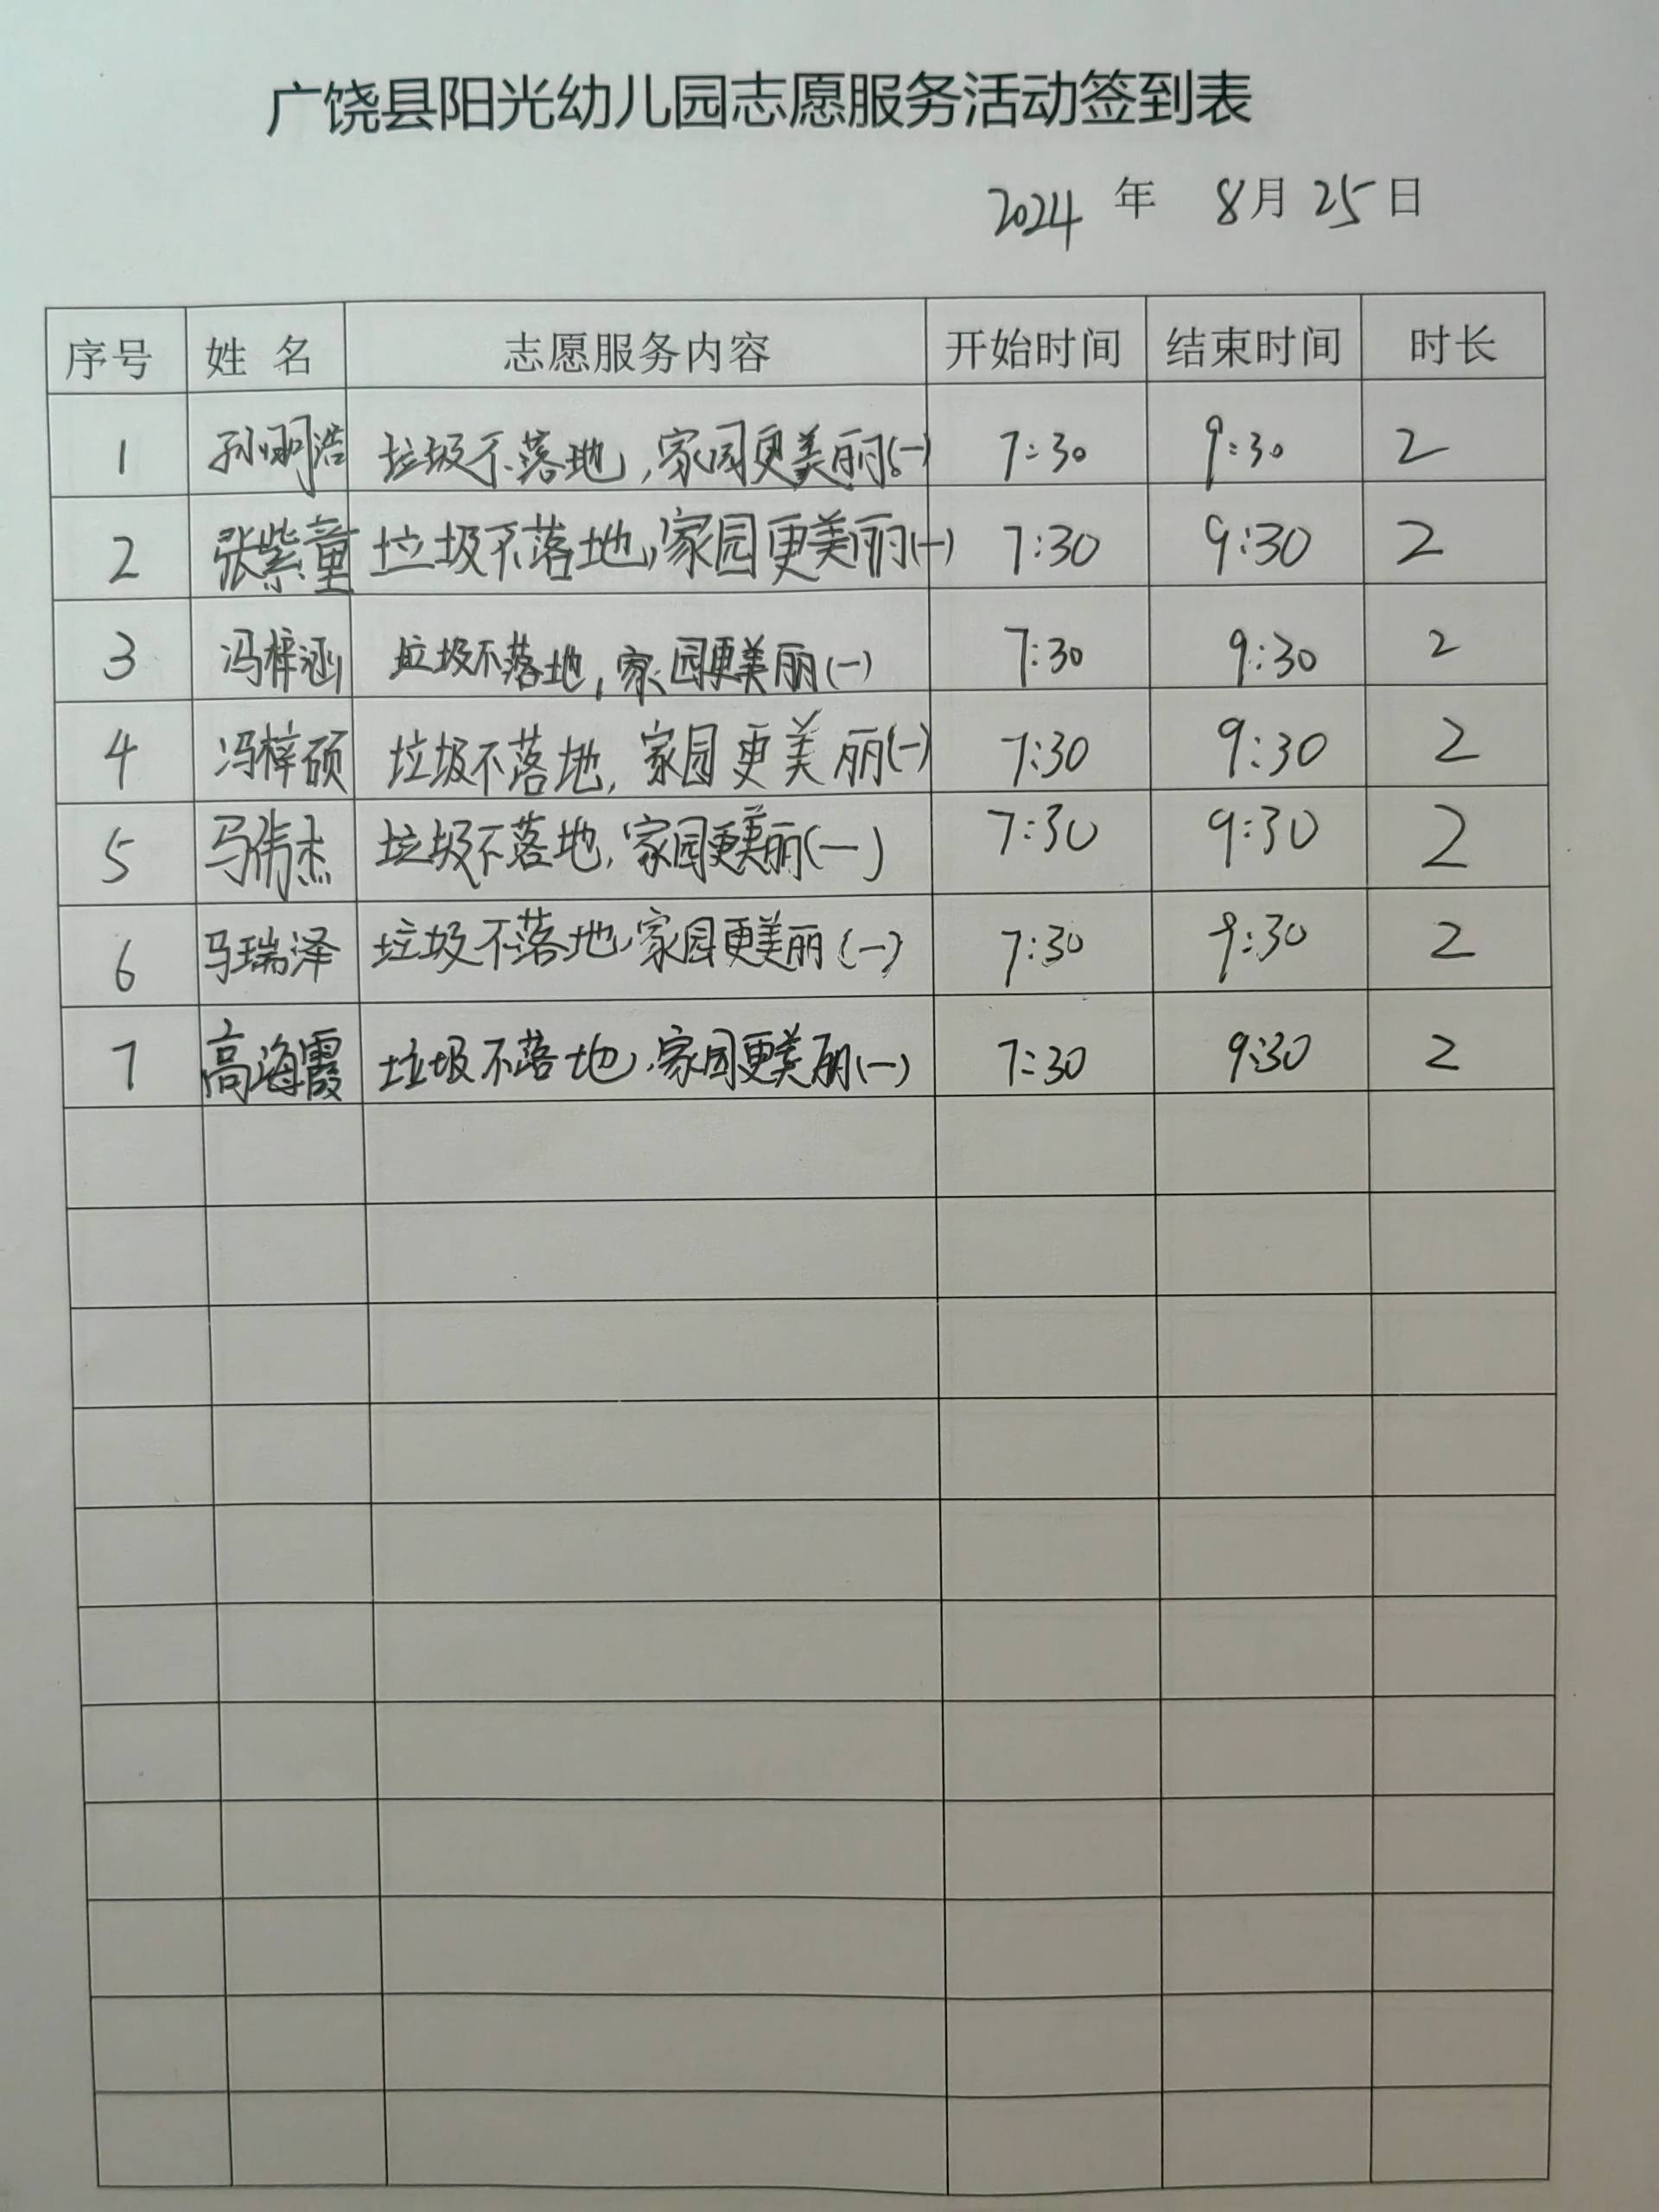 广饶县阳光幼儿园志愿服务活动签到表
2024 年 8月 25日
序号 姓 名 志愿服务内容 开始时间 结束时间 时长
1 孙浩 垃圾不落地,家园更美丽(一) 7:30 9:30 2
2 张紫童 垃圾不落地,家园更美丽(一) 7:30 9:30 2
3 冯梓涵 垃圾不落地,家园更美丽(一) 7:30 9:30 2
4 冯梓硕 垃圾不落地,家园更美丽(一) 7:30 9:30 2
5 马伟杰 垃圾不落地,家园更美丽(一) 7:30 9:30 2
6 马瑞泽 垃圾不落地,家园更美丽(一) 7:30 9:30 2
7 高海霞 垃圾不落地,家园更美丽(一) 7:30 9:30 2